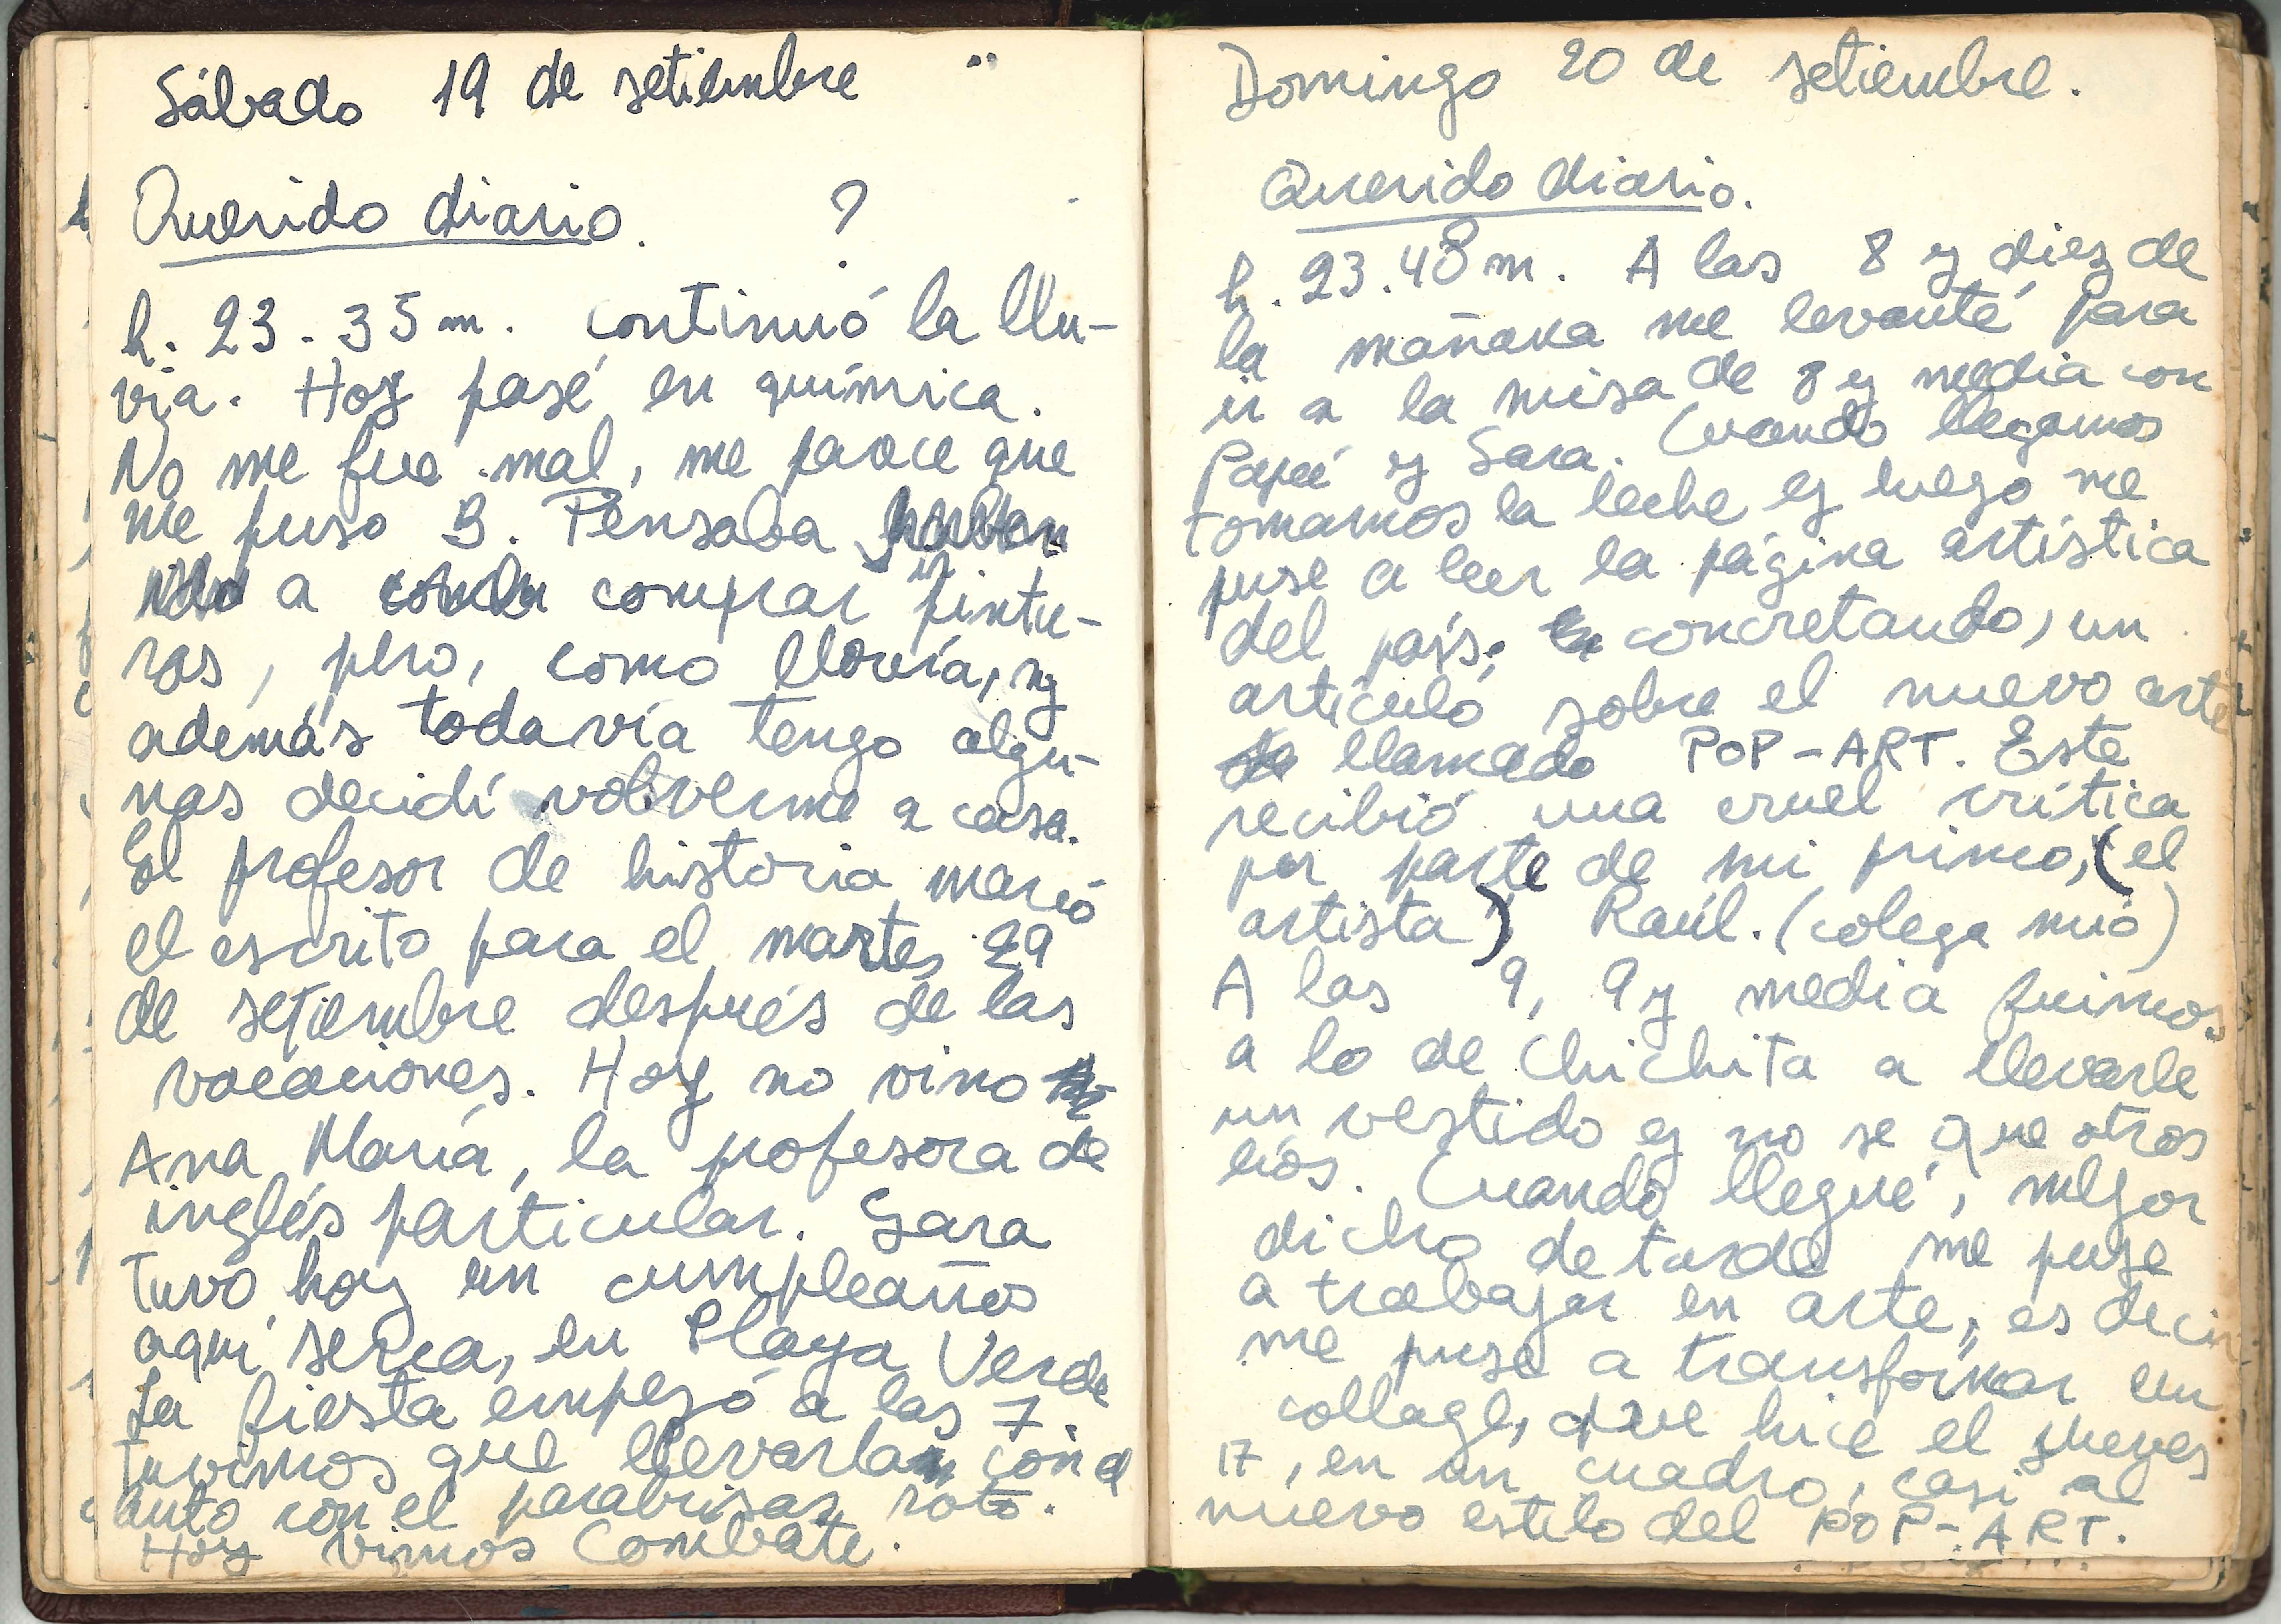 Sábado 19 de setiembre
Querido diario. ?
h. 23.35m. continuó la llu-
via. Hoy pasé en química.
No me fue mal, me parece que
me puso B. Pensaba
a comprar pintu-
ras, pero, como llovía, y
además todavía tengo algu-
nas decidí volverme a casa.
El profesor de historia marcó
el escrito para el martes 29
de setiembre después de las
vacaciones. Hoy no vino
Ana María, la profesora de
inglés particular. Sara
tuvo hoy un cumpleaños
aquí serca, en Playa Verde
La fiesta empezó a las 7.
Tuvimos que llevarla con el
auto con el parabrisas roto.
Hoy vimos Combate.
Domingo 20 de setiembre.
Querido diario.
h. 23.48m. A las 8 y diez de
la mañana me levanté para
ir a la misa de 8 y media con
Papá y Sara. Cuando llegamos
tomamos la leche y luego me
puse a leer la página artística
del país; concretando, un
artículo sobre el nuevo arte
llamado POP-ART. Este
recibió una cruel crítica
por parte de mi primo, (el
artista) Raúl. (colega mío)
A las 9, 9 y media fuimos
a lo de Chichita a llevarle
un vestido y no se que otros
líos. Cuando llegué, mejor
dicho de tarde me puse
a trabajar en arte, es decir
me puse a transformar un
collage, que hice el jueves
17, en un cuadro, casi al
nuevo estilo del POP-ART.